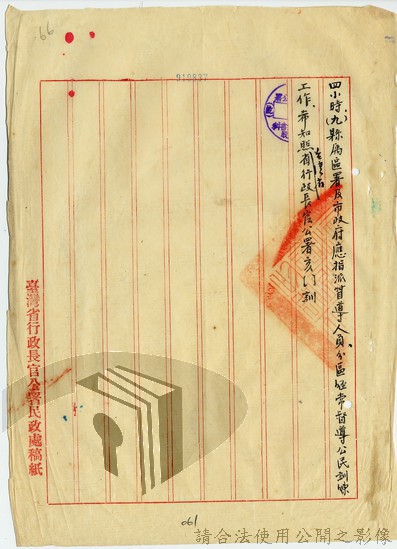 66
015837
四小時(九)縣屬區署及市政府應指派督導人員分區經常督導公民訓練
工作希知照
臺灣省
行政長官公署亥
訓
臺灣省行政長官公署民政處稿紙
061
請合法使用公開之影像